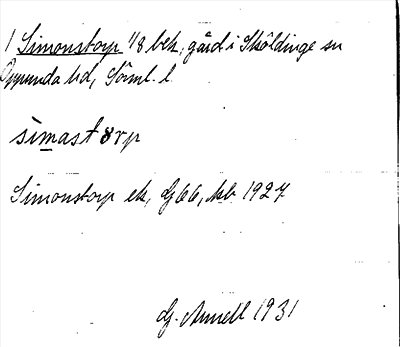 1 Simonstorp 1/8 bek, gård i Sköldinge sn
Oppunda hd, Söml. l.
sìmast8rp
Simonstorp ek, G66, kb 1927
G. Annell 1931